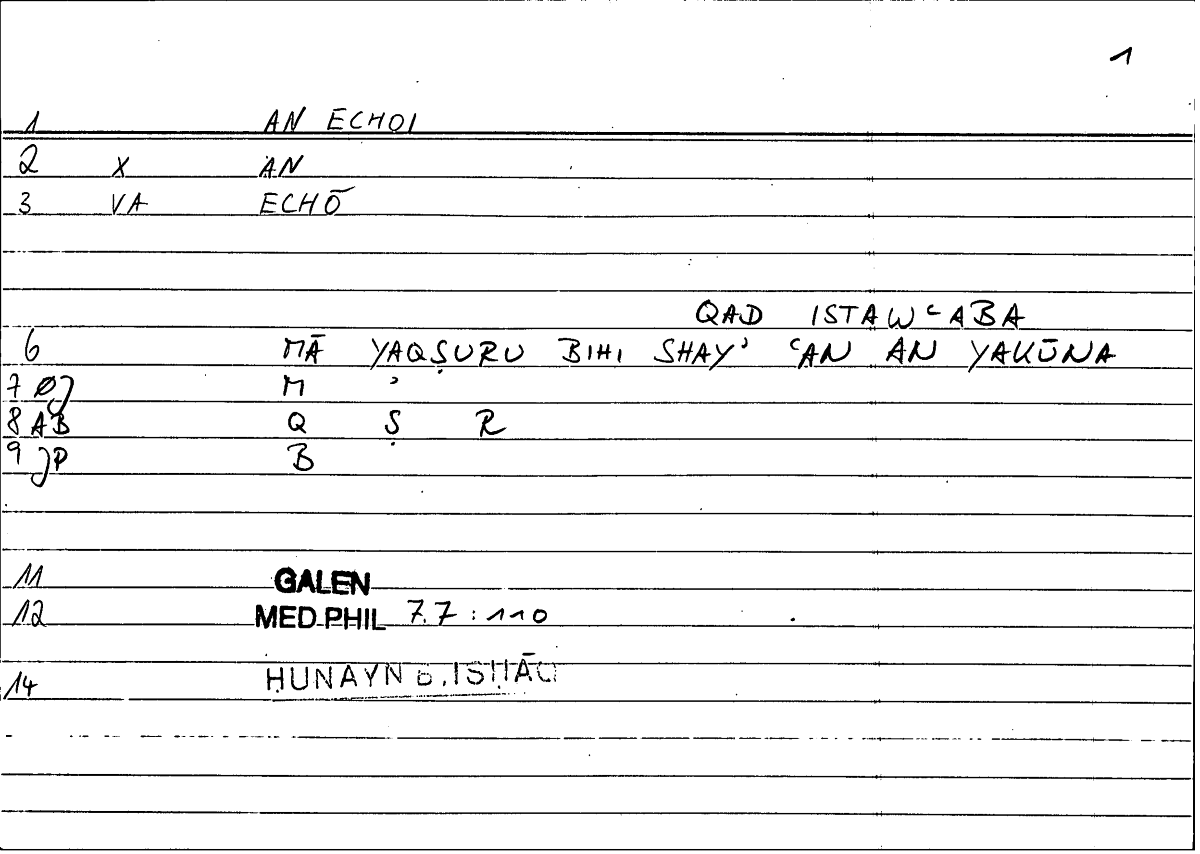 1
1 AN ECHOI
2 X AN
3 VA ECHŌ
QAD ISTAWʿABA
6 MĀ YAQṢURU BIHI SHAYʾ ʿAN AN YAKŪNA
7 ØJ M ʾ
8 AB Q Ṣ R
9 JP B
11 GALEN
12 MED.PHIL 7.7 : 110
14 ḤUNAYN B. ISḤĀQ